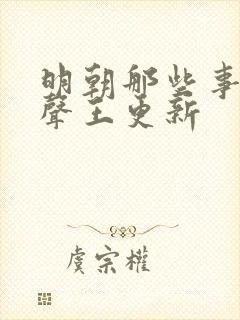 明朝那些事
聲王更新
虞宗權